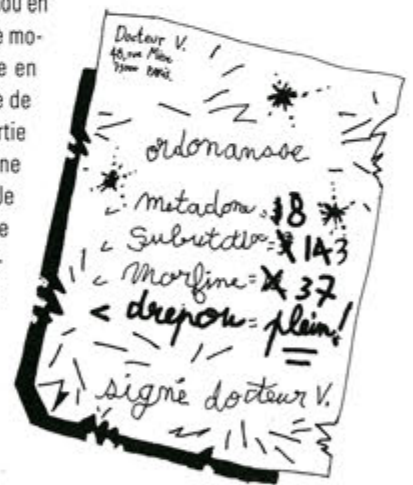 ou en
e mo-
e en
e de
rtie
ne
Je
e
Docteur V.
48, rue
ordonansse
metadone = 8
Subutex = 143
Morfine = 37
< drepou = plein!
signé docteur V.